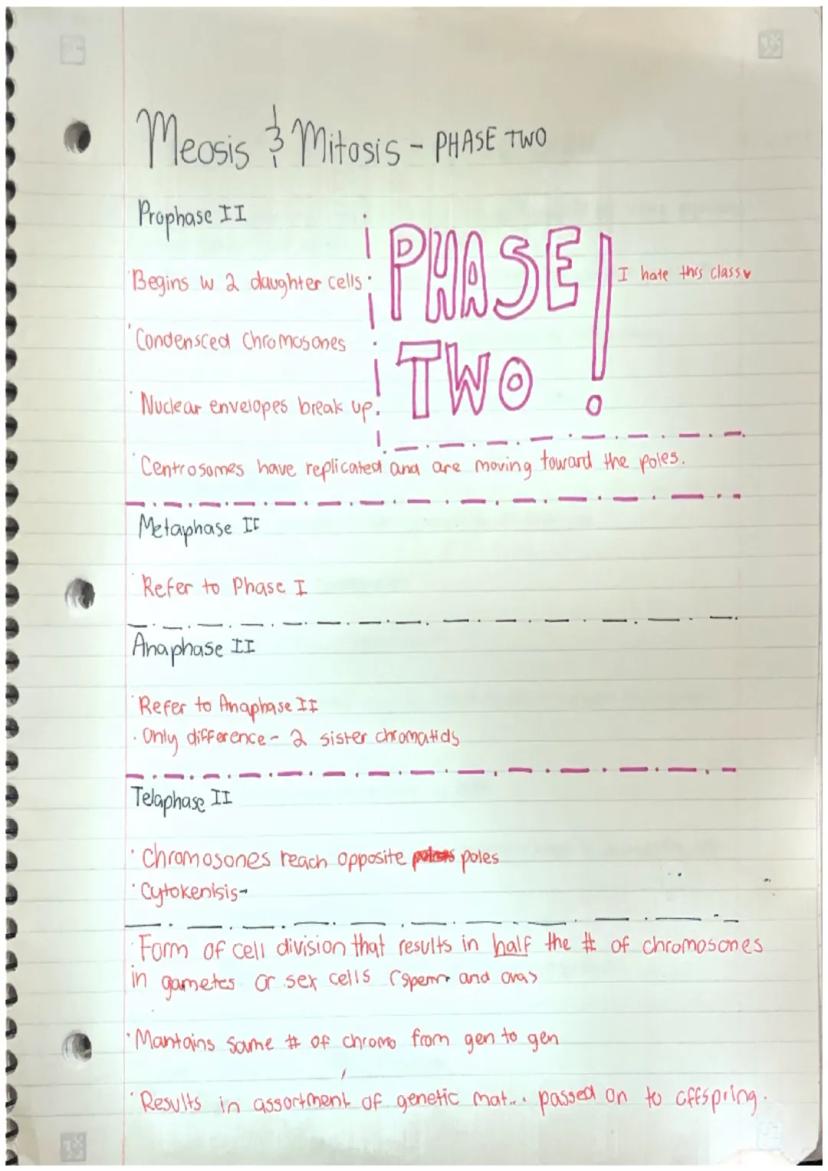 Meosis & Mitosis - PHASE TWO
Prophase II
PHASE
TWO!
I hate this class♥
·Begins w 2 daughter cells
·Condensced Chromosones
·Nuclear envelopes break up.
·Centrosomes have replicated and are moving toward the poles.
Metaphase II
·Refer to Phase I
Anaphase II
·Refer to Anaphase II
·Only difference - 2 sister chromatids
Telaphase II
·Chromosones reach opposite poles
·Cytokenisis-
·Form of cell division that results in half the # of chromosones
in gametes or sex cells (sperm and ova)
·Mantains same # of chromo from gen to gen
·Results in assortment of genetic mat... passed on to offspring.